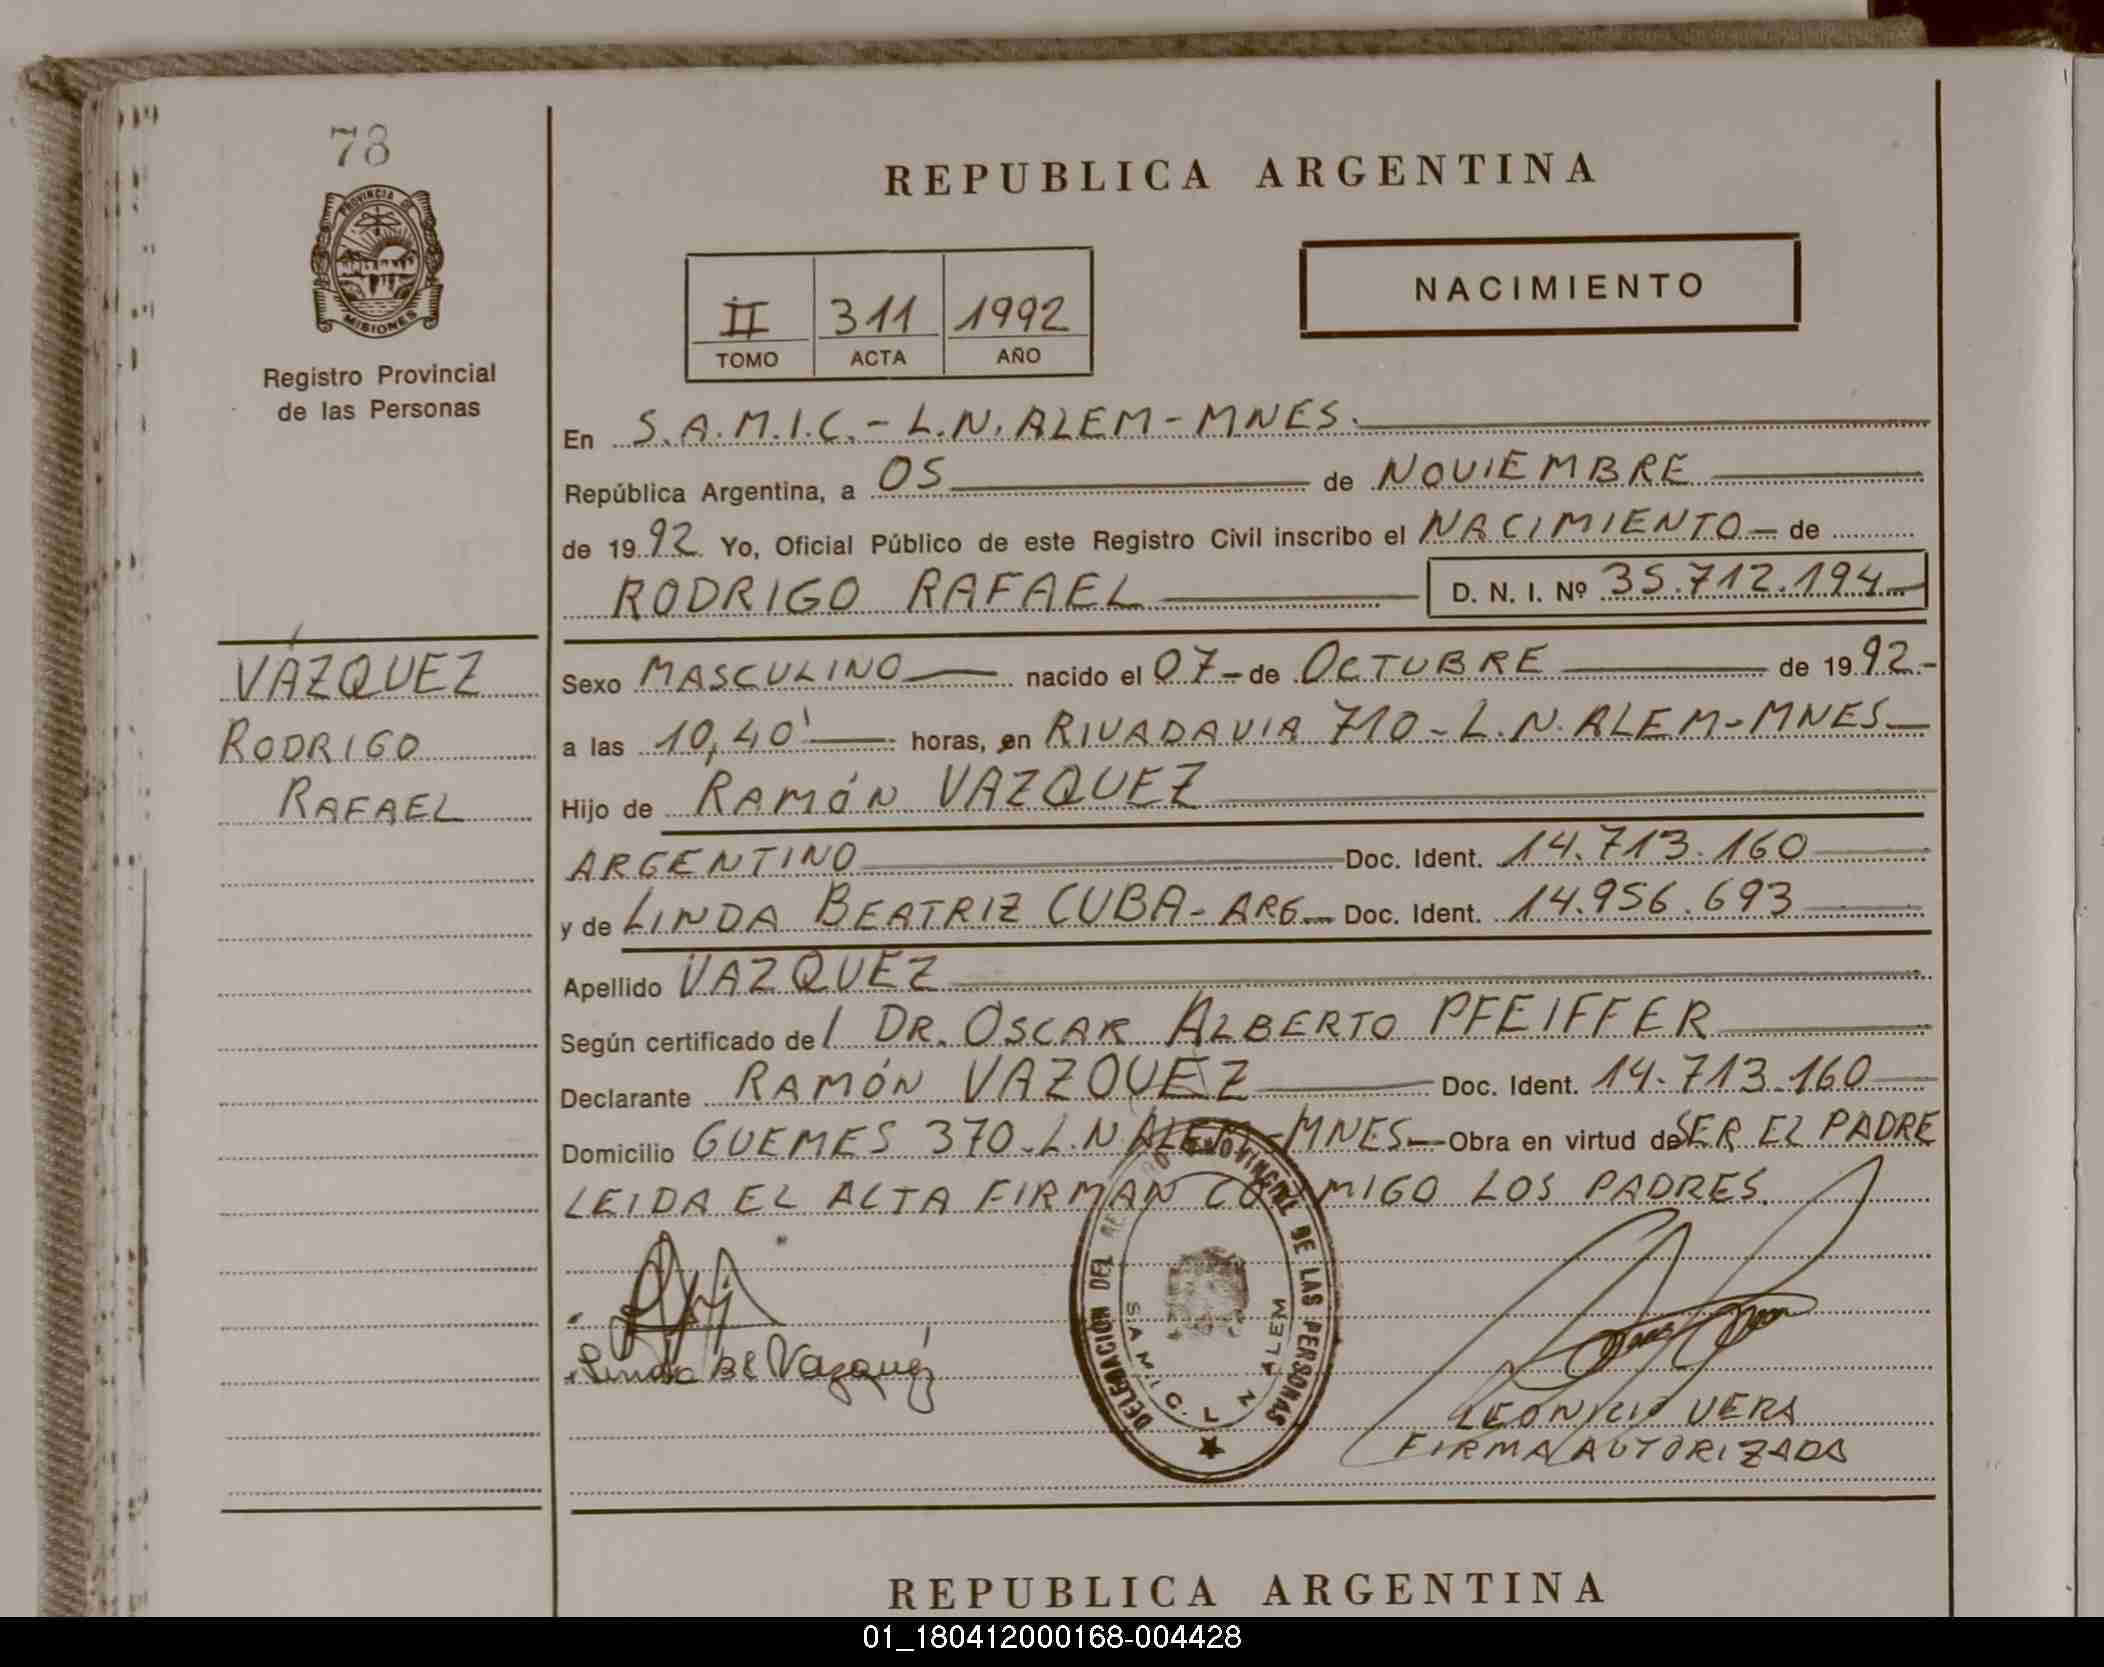 78
PROVINCIA DE
MISIONES
Registro Provincial
de las Personas
VÁZQUEZ
RODRIGO
RAFAEL
REPUBLICA ARGENTINA
II 311 1992
TOMO ACTA AÑO
NACIMIENTO
En S.A.M.I.C.- L.N. ALEM - MNES.
República Argentina, a 05 de NOVIEMBRE
de 1992 Yo, Oficial Público de este Registro Civil inscribo el NACIMIENTO - de
RODRIGO RAFAEL D. N. I. Nº 35.712.194
Sexo MASCULINO nacido el 07 - de OCTUBRE de 1992.-
a las 10,40' horas, en RIVADAVIA 710 - L.N. ALEM - MNES
Hijo de RAMÓN VÁZQUEZ
ARGENTINO Doc. Ident. 14.713.160
y de LINDA BEATRIZ CUBA - ARG Doc. Ident. 14.956.693
Apellido VAZQUEZ
Según certificado del DR. OSCAR ALBERTO PFEIFFER
Declarante RAMÓN VAZQUEZ Doc. Ident. 14.713.160
Domicilio GUEMES 370 - L.N. ALEM - MNES Obra en virtud de SER EL PADRE
LEIDA EL ACTA FIRMAN CONMIGO LOS PADRES.
Linda de Vazquez
DELEGACION DEL REGISTRO PROVINCIAL DE LAS PERSONAS
S.A.M.I.C. L. N. ALEM
LEONICIO VERA
FIRMA AUTORIZADA
REPUBLICA ARGENTINA
01_180412000168-004428